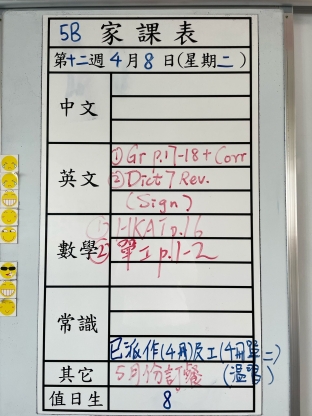 5B 家課表
第十二週 4月8日(星期二)
中文
英文
① Gr p.17-18 + Corr
② Dict 7 Rev.
(Sign)
數學
① HKAT p.16
② 單工 p.1-2
常識
已派作(4冊)及工(4冊單二)
其它
5月份訂餐
(溫習)
值日生
8